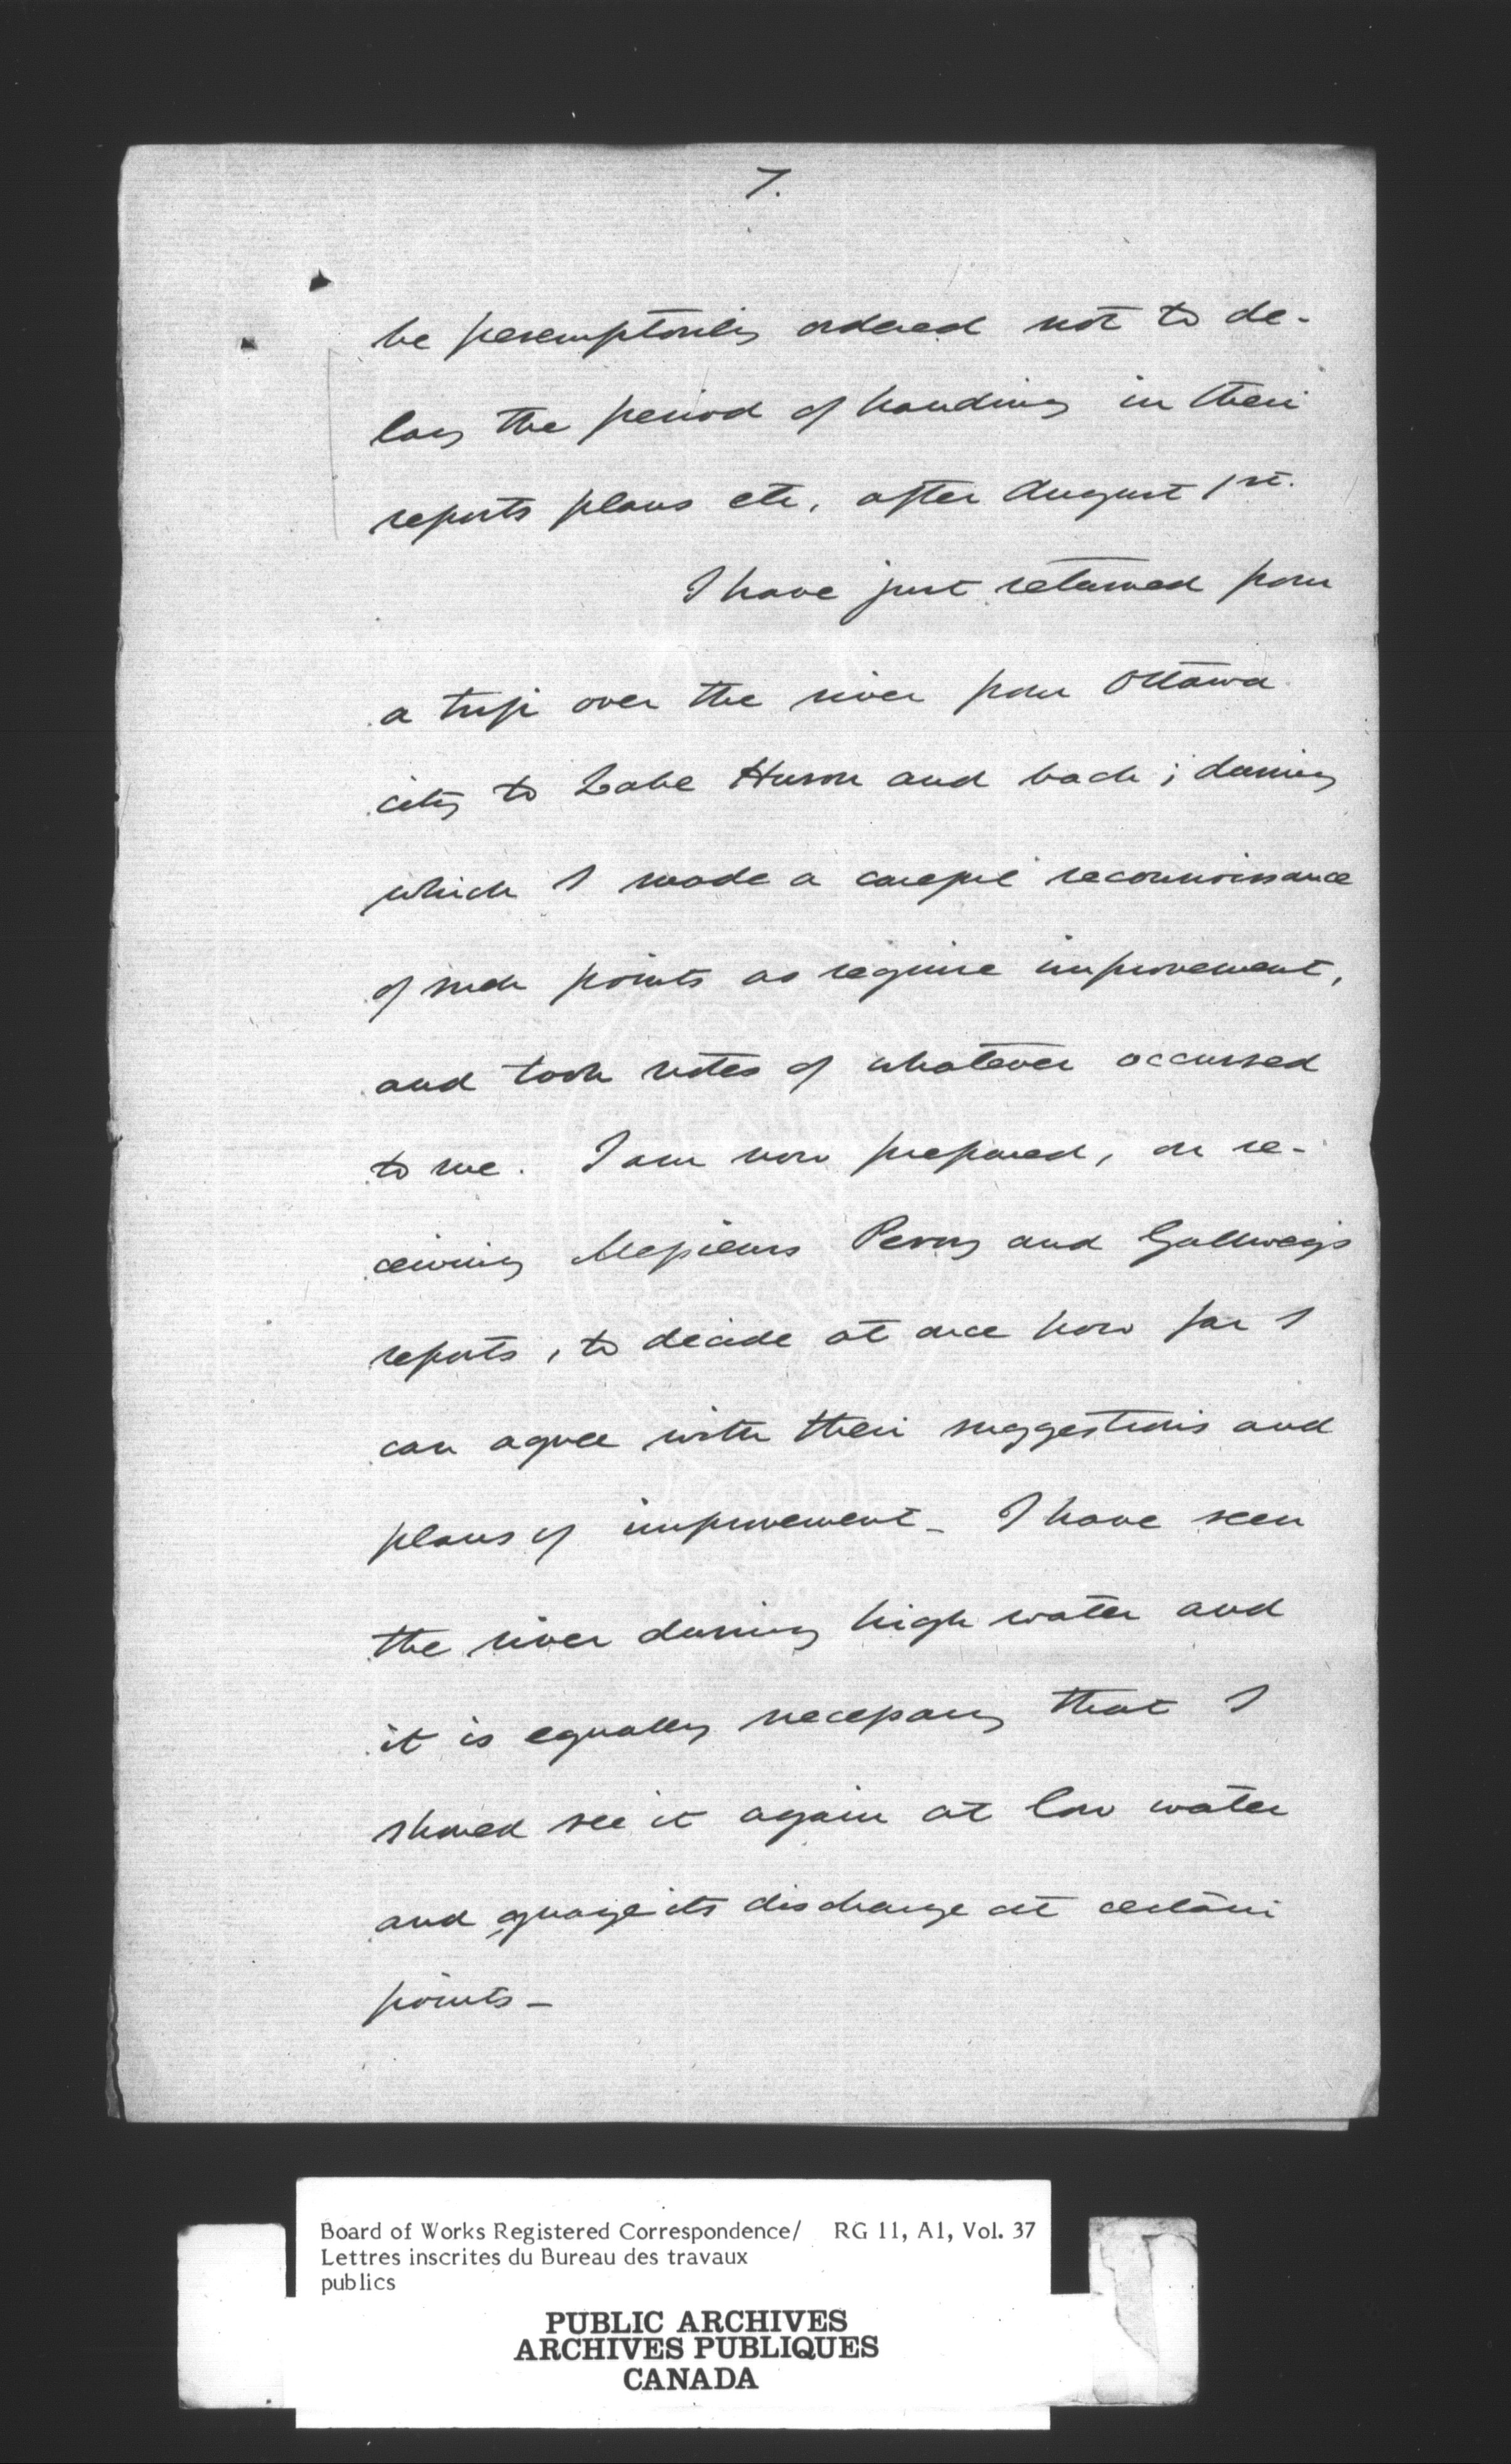 7.
be peremptorily ordered not to de-
lay the period of handing in their
reports plans etc, after August 1st.
I have just returned from
a trip over the river from Ottawa
city to Lake Huron and back; during
which I made a careful reconnoissance
of such points as require improvement,
and took notes of whatever occurred
to me. I am now prepared, on re-
ceiving Messieurs Perry and Gallwey's
reports, to decide at once how far I
can agree with their suggestions and
plans of improvement_ I have seen
the river during high water and
it is equally necessary that I
should see it again at low water
and guage its discharge at certain
points_
Board of Works Registered Correspondence/ RG 11, A1, Vol. 37
Lettres inscrites du Bureau des travaux
publics
PUBLIC ARCHIVES
ARCHIVES PUBLIQUES
CANADA